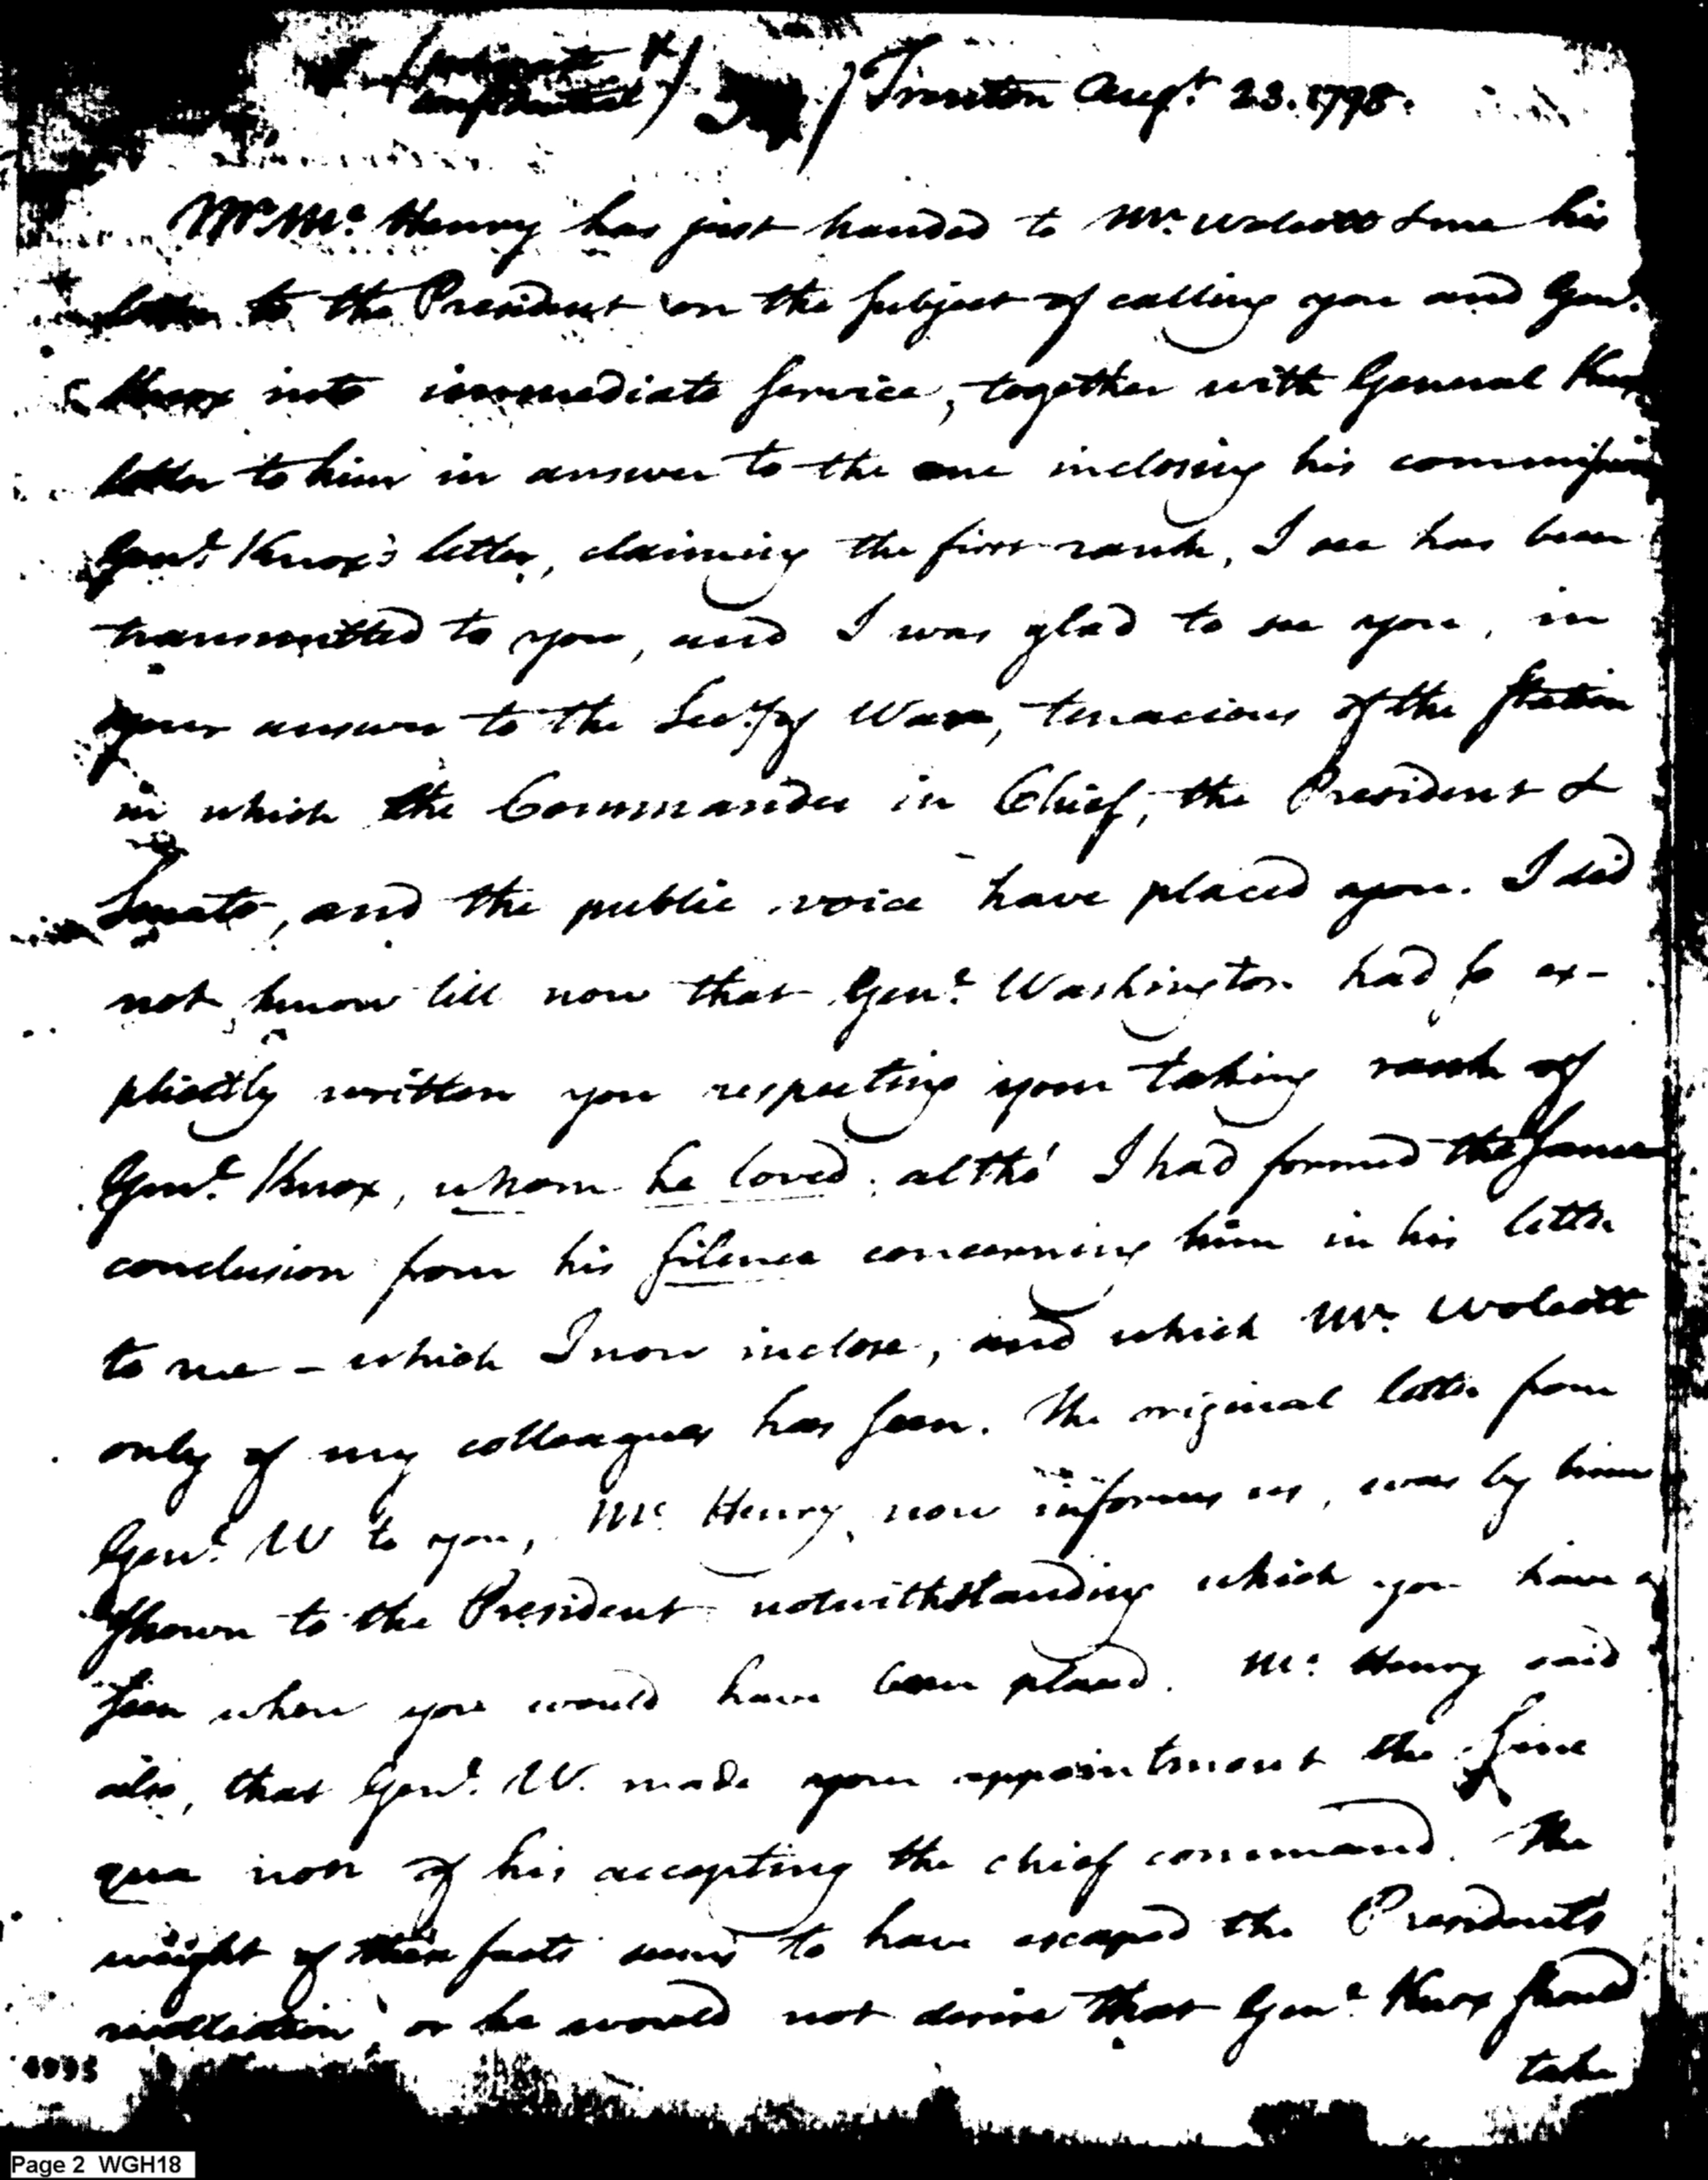 (private &
confidential) Trenton Augt. 23. 1798.
Mr. McHenry has just handed to Mr. Wolcott & me his
letter to the President on the subject of calling you and Genl.
Knox into immediate service, together with General Knox
letter to him in answer to the one inclosing his commission
Genl. Knox's letter, claiming the first rank, I see has been
transmitted to you, and I was glad to see you, in
your answer to the Secy. of War, tenacious of the station
in which the Commander in Chief, the President &
Senate, and the public voice have placed you. I did
not know till now that Genl. Washington had so ex-
plicitly written you respecting your taking rank of
Genl. Knox, whom he loved; altho' I had formed the same
conclusion from his silence concerning him in his letter
to me – which I now inclose, and which Mr. Wolcott
only of my colleagues has seen. The original letter from
Genl. W to you, Mc. Henry now informs us, was by him
shown to the President notwithstanding which you have
seen where you would have been placed. Mc. Henry said
also, that Genl. W. made your appointment the sine
qua non of his accepting the chief command. The
weight of these facts seems to have escaped the President's
recollection, or he would not desire that Genl. Knox should
take
Page 2 WGH18